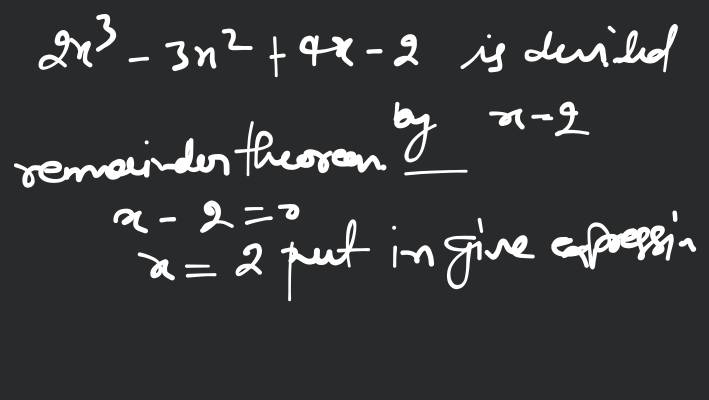 2x³ - 3x² + 4x - 2 is divided
by x-2
remainder theorem.
x - 2 = 0
x = 2 put in give expressin